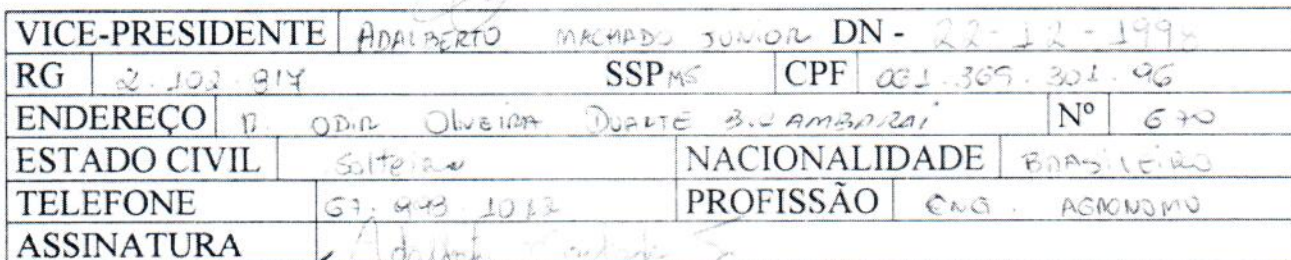 VICE-PRESIDENTE ADALBERTO MACHADO JUNIOR DN - 22-12-1998
RG 2.102.917 SSP MS CPF 031.365.301.96
ENDEREÇO R. ODIR OLIVEIRA DUARTE Nº 670
ESTADO CIVIL Solteiro NACIONALIDADE BRASILEIRO
TELEFONE 67. PROFISSÃO ENG. AGRONOMO
ASSINATURA